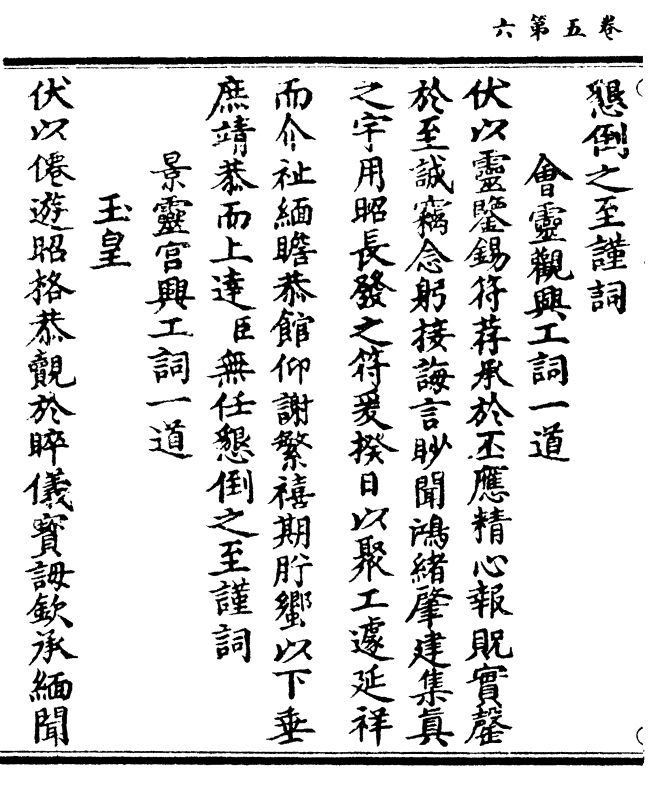 卷五第六
懇倒之至謹詞
會靈觀興工詞一道
伏以靈鑒錫符荐承於丕應精心報貺實罄
於至誠竊念躬接誨言眇聞鴻緒肇建集真
之宇用昭長發之符爰揆日以聚工遽延祥
而介祉緬瞻恭館仰謝繁禧期肸蠁以下垂
庶靖恭而上達臣無任懇倒之至謹詞
景靈宮興工詞一道
玉皇
伏以僊遊昭格恭覿於睟儀寶誨欽承緬聞